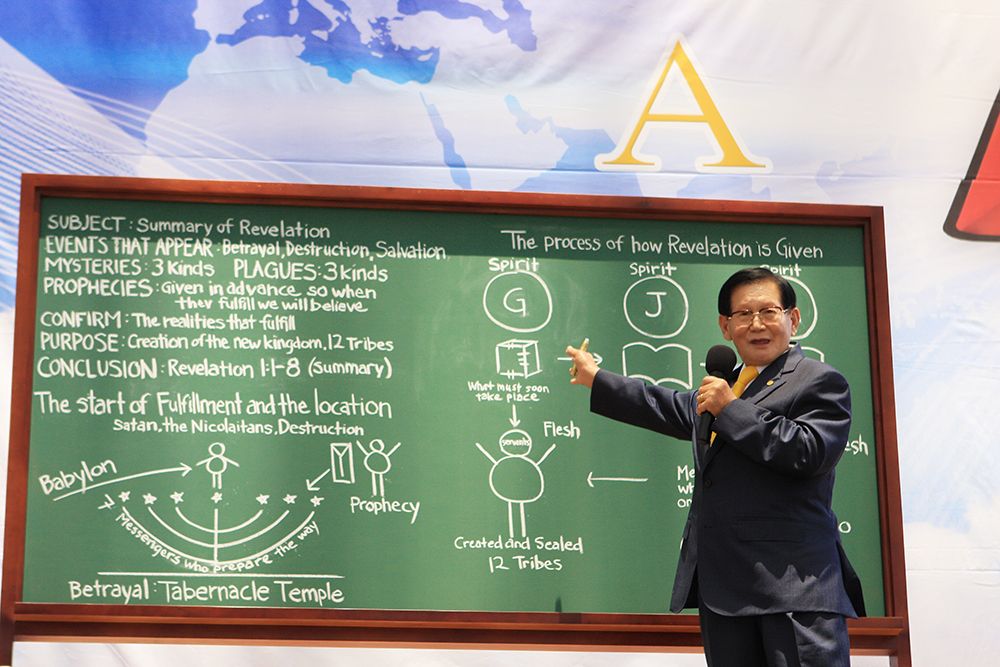 A
SUBJECT : Summary of Revelation
EVENTS THAT APPEAR : Betrayal, Destruction, Salvation
MYSTERIES : 3 Kinds PLAGUES : 3 Kinds
PROPHECIES : Given in advance so when
they fulfill we will believe
CONFIRM : The realities that fulfill
PURPOSE : Creation of the new kingdom, 12 Tribes
CONCLUSION : Revelation 1:1-8 (Summary)
The start of Fulfillment and the location
Satan, the Nicolaitans, Destruction
Babylon
Prophecy
7
Messengers who prepare the way
Betrayal : Tabernacle Temple
The process of how Revelation is Given
Spirit Spirit Spirit
G J
What must soon
take place
servants
Flesh
Created and Sealed
12 Tribes